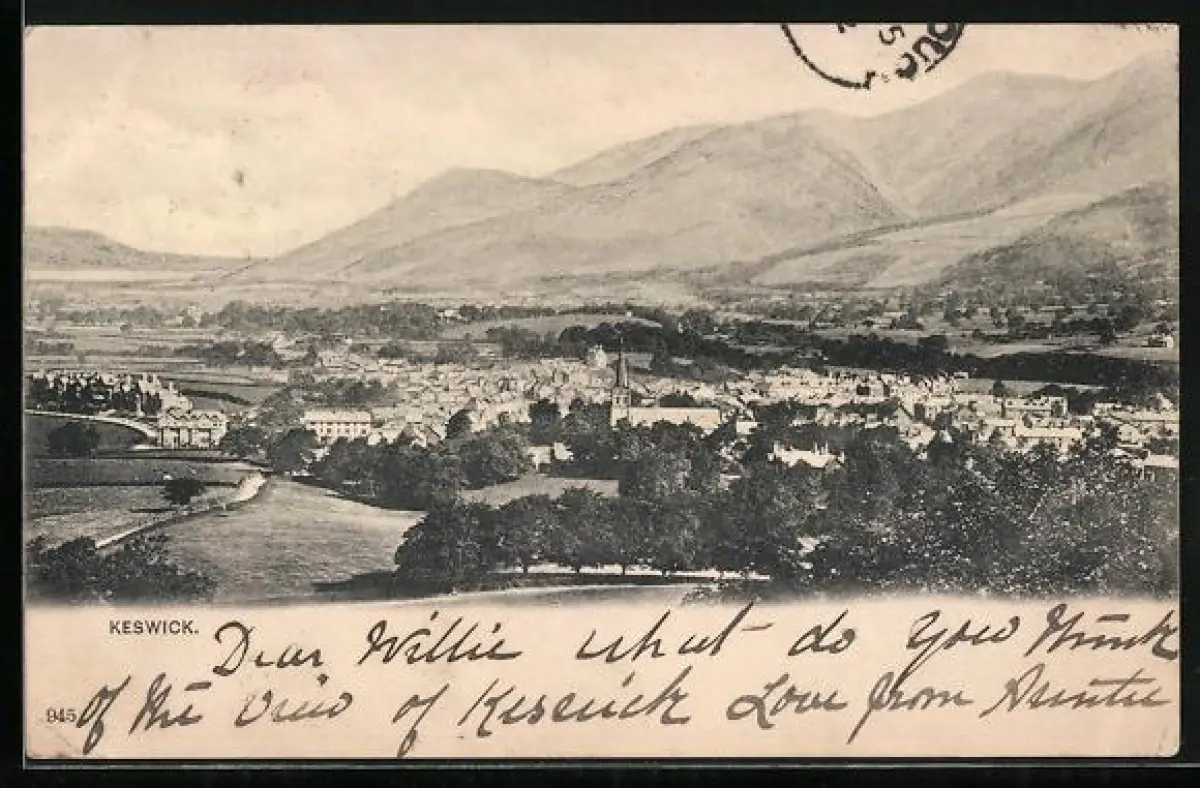 KESWICK.
Dear Willie what do You think
of the View of Keswick Love from Auntie
945